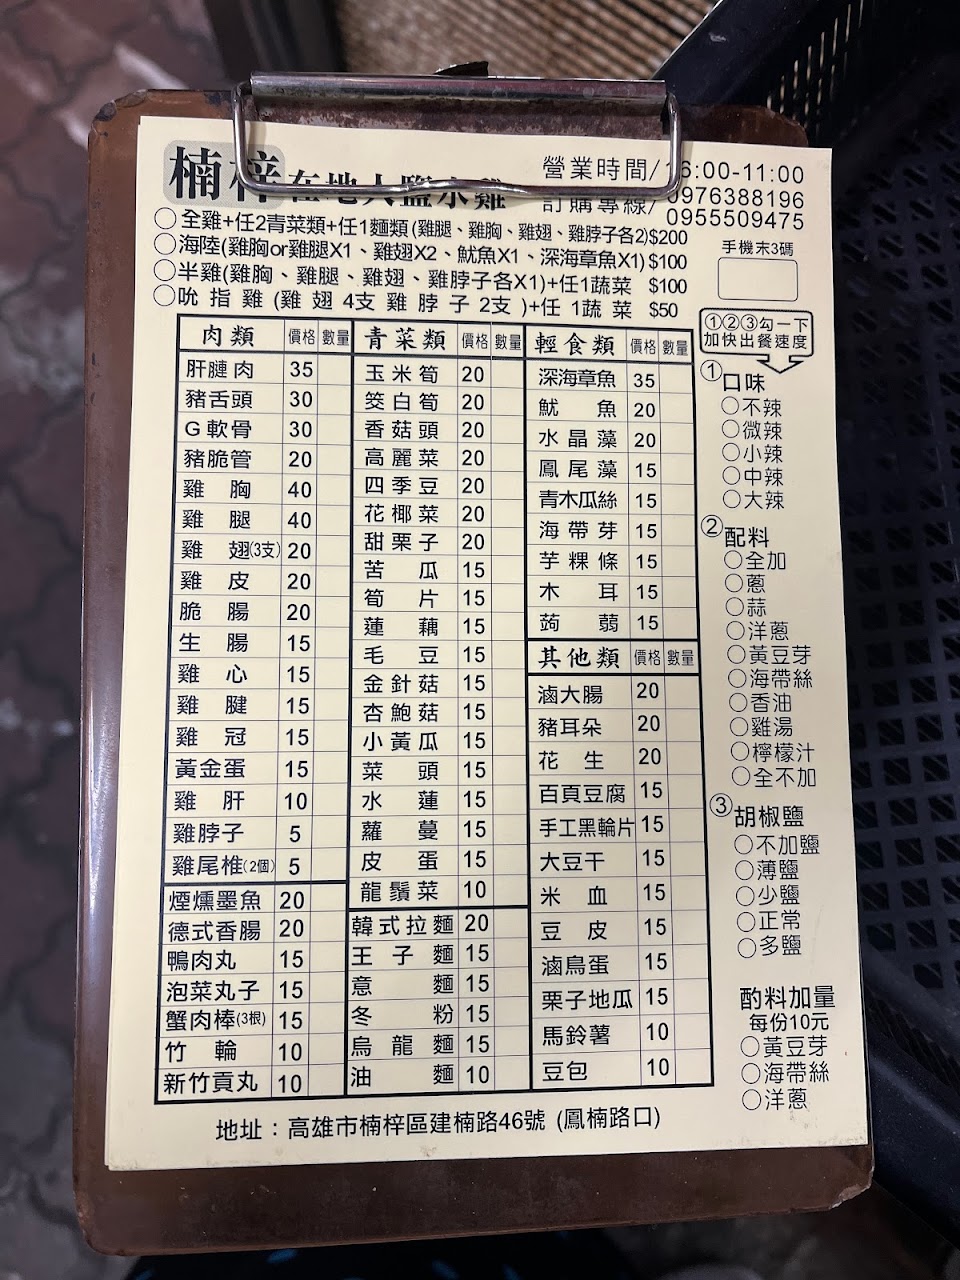 楠梓在地人鹽水雞
營業時間/16:00-11:00
訂購專線/0976388196
0955509475
○全雞+任2青菜類+任1麵類(雞腿、雞胸、雞翅、雞脖子各2)$200
○海陸(雞胸or雞腿X1、雞翅X2、魷魚X1、深海章魚X1)$100
○半雞(雞胸、雞腿、雞翅、雞脖子各X1)+任1蔬菜 $100
○吮指雞(雞翅4支雞脖子2支)+任1蔬菜 $50
手機末3碼
①②③勾一下
加快出餐速度
肉類 價格 數量
肝膢肉 35
豬舌頭 30
G軟骨 30
豬脆管 20
雞胸 40
雞腿 40
雞翅(3支) 20
雞皮 20
脆腸 20
生腸 15
雞心 15
雞腱 15
雞冠 15
黃金蛋 15
雞肝 10
雞脖子 5
雞尾椎(2個) 5
煙燻墨魚 20
德式香腸 20
鴨肉丸 15
泡菜丸子 15
蟹肉棒(3根) 15
竹輪 10
新竹貢丸 10
青菜類 價格 數量
玉米筍 20
筊白筍 20
香菇頭 20
高麗菜 20
四季豆 20
花椰菜 20
甜栗子 20
苦瓜 15
筍片 15
蓮藕 15
毛豆 15
金針菇 15
杏鮑菇 15
小黃瓜 15
菜頭 15
水蓮 15
蘿蔓 15
皮蛋 15
龍鬚菜 10
韓式拉麵 20
王子麵 15
意麵 15
冬粉 15
烏龍麵 15
油麵 10
輕食類 價格 數量
深海章魚 35
魷魚 20
水晶藻 20
鳳尾藻 15
青木瓜絲 15
海帶芽 15
芋粿條 15
木耳 15
蒟蒻 15
其他類 價格 數量
滷大腸 20
豬耳朵 20
花生 20
百頁豆腐 15
手工黑輪片 15
大豆干 15
米血 15
豆皮 15
滷鳥蛋 15
栗子地瓜 15
馬鈴薯 10
豆包 10
①口味
○不辣
○微辣
○小辣
○中辣
○大辣
②配料
○全加
○蔥
○蒜
○洋蔥
○黃豆芽
○海帶絲
○香油
○雞湯
○檸檬汁
○全不加
③胡椒鹽
○不加鹽
○薄鹽
○少鹽
○正常
○多鹽
酌料加量
每份10元
○黃豆芽
○海帶絲
○洋蔥
地址：高雄市楠梓區建楠路46號 (鳳楠路口)